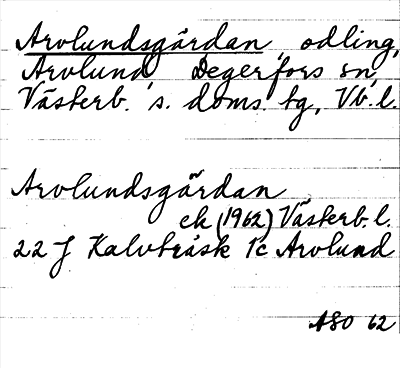 Arvlundsgärdan, odling,
Arvlund, Degerfors sn,
Västerb. s. doms. tg, Vb. l.
Arvlundsgärdan
ek (1962) Västerb. l.
22 J Kalvträsk 1c Arvlund
ASO 62